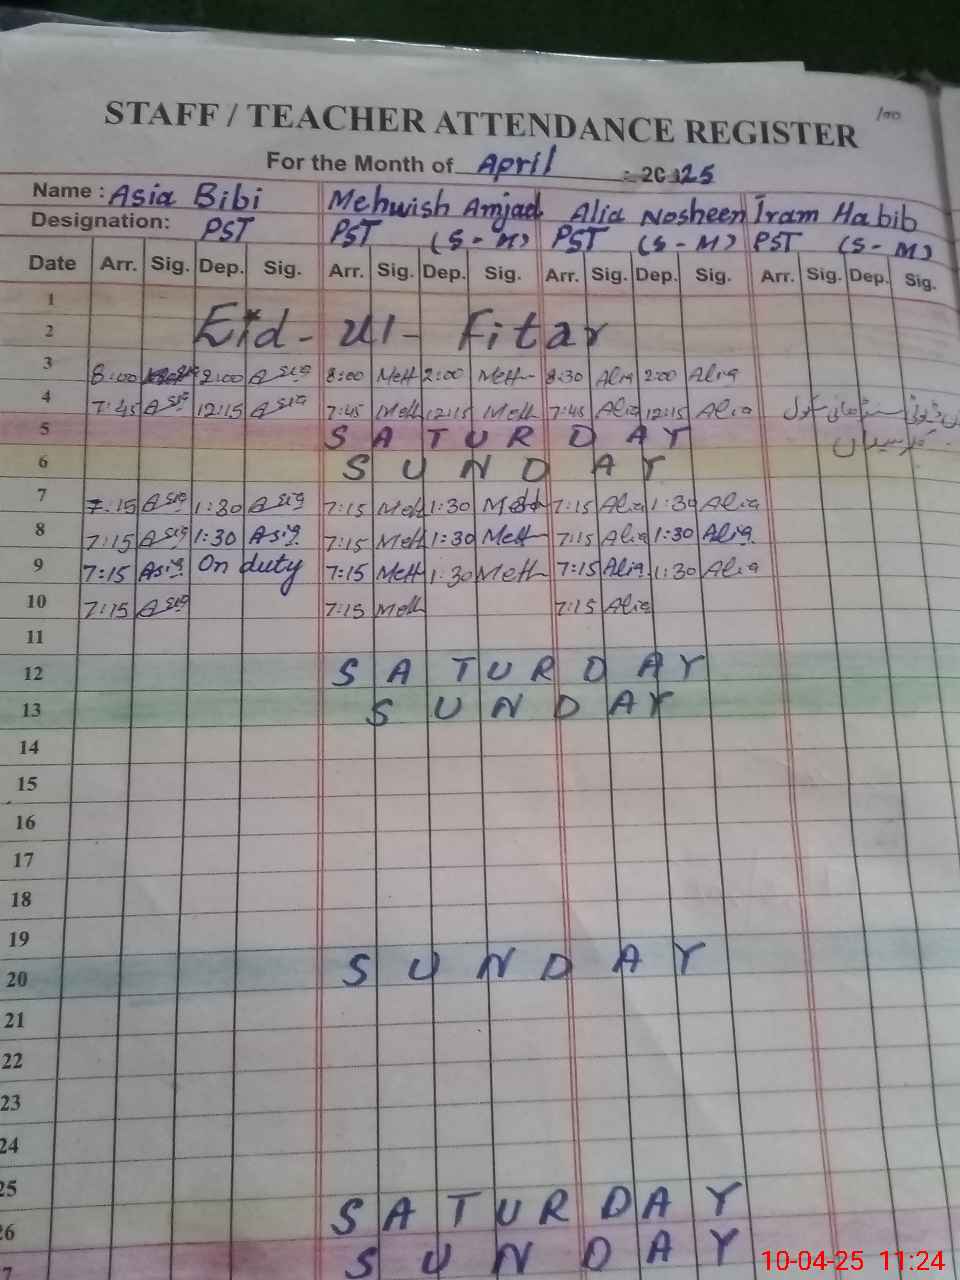 100
STAFF / TEACHER ATTENDANCE REGISTER
For the Month of April 2025
Name : Asia Bibi Mehwish Amjad Alia Nosheen Iram Habib
Designation: PST PST (S-M) PST (S-M) PST (S-M)
Date Arr. Sig. Dep. Sig. Arr. Sig. Dep. Sig. Arr. Sig. Dep. Sig. Arr. Sig. Dep. Sig.
1
2 Eid-ul-Fitar
3 8:00 2:00 Asia 8:00 Meh 2:00 Meh 8:30 Alia 2:00 Alia
4 7:45 Asia 12:15 Asia 7:45 Meh 12:15 Meh 7:45 Alia 12:15 Alia
5 SATURDAY
6 SUNDAY
7 7:15 Asia 1:30 Asia 7:15 Meh 1:30 Meh 7:15 Alia 1:30 Alia
8 7:15 Asia 1:30 Asia 7:15 Meh 1:30 Meh 7:15 Alia 1:30 Alia
9 7:15 Asia On duty 7:15 Meh 1:30 Meh 7:15 Alia 1:30 Alia
10 7:15 Asia 7:15 Meh 7:15 Alia
11
12 SATURDAY
13 SUNDAY
14
15
16
17
18
19
20 SUNDAY
21
22
23
24
25
26 SATURDAY
7 SUNDAY
10-04-25 11:24